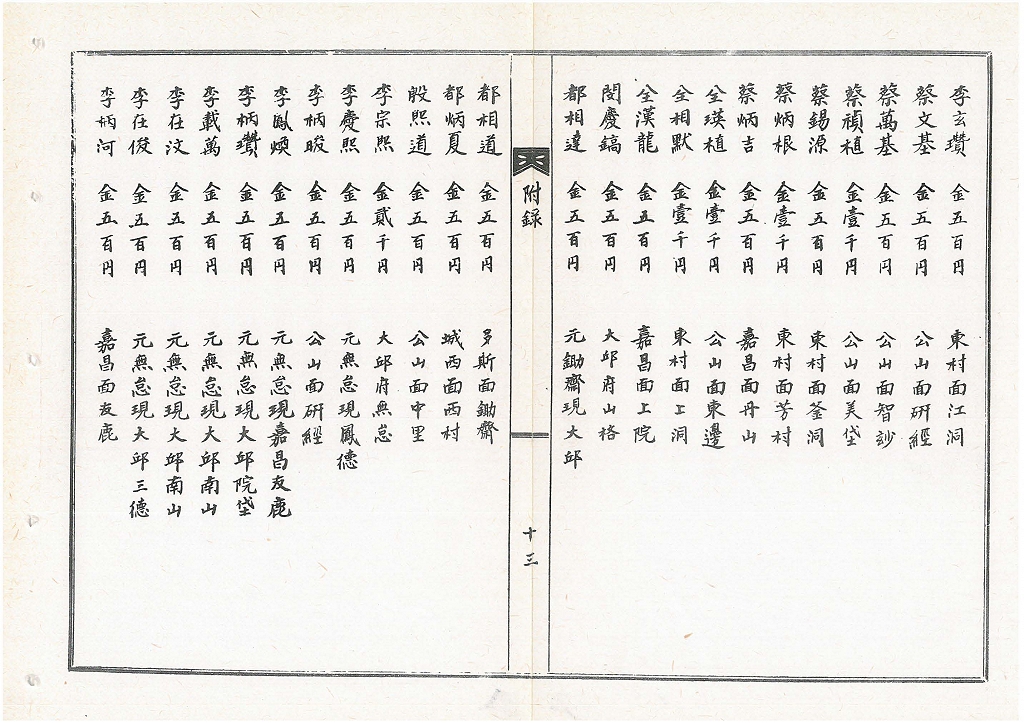 李玄瓚 金五百円 東村面江洞
蔡文基 金五百円 公山面硏經
蔡萬基 金五百円 公山面智妙
蔡禎植 金壹千円 公山面美垈
蔡錫源 金五百円 東村面釜洞
蔡炳根 金壹千円 東村面芳村
蔡炳吉 金五百円 嘉昌面丹山
全瑛植 金壹千円 公山面東邊
全相默 金壹千円 東村面上洞
全漢龍 金五百円 嘉昌面上院
閔慶鎬 金五百円 大邱府山格
都相達 金五百円 元鋤齋現大邱
附録
十三
都相道 金五百円 多斯面鋤齋
都炳夏 金五百円 城西面西村
殷熙道 金五百円 公山面中里
李宗熙 金貳千円 大邱府無怠
李慶熙 金五百円 元無怠現鳳德
李柄晙 金五百円 公山面硏經
李鳳煥 金五百円 元無怠現嘉昌友鹿
李柄瓚 金五百円 元無怠現大邱院垈
李載萬 金五百円 元無怠現大邱南山
李在汶 金五百円 元無怠現大邱南山
李在俊 金五百円 元無怠現大邱三德
李柄河 金五百円 嘉昌面友鹿